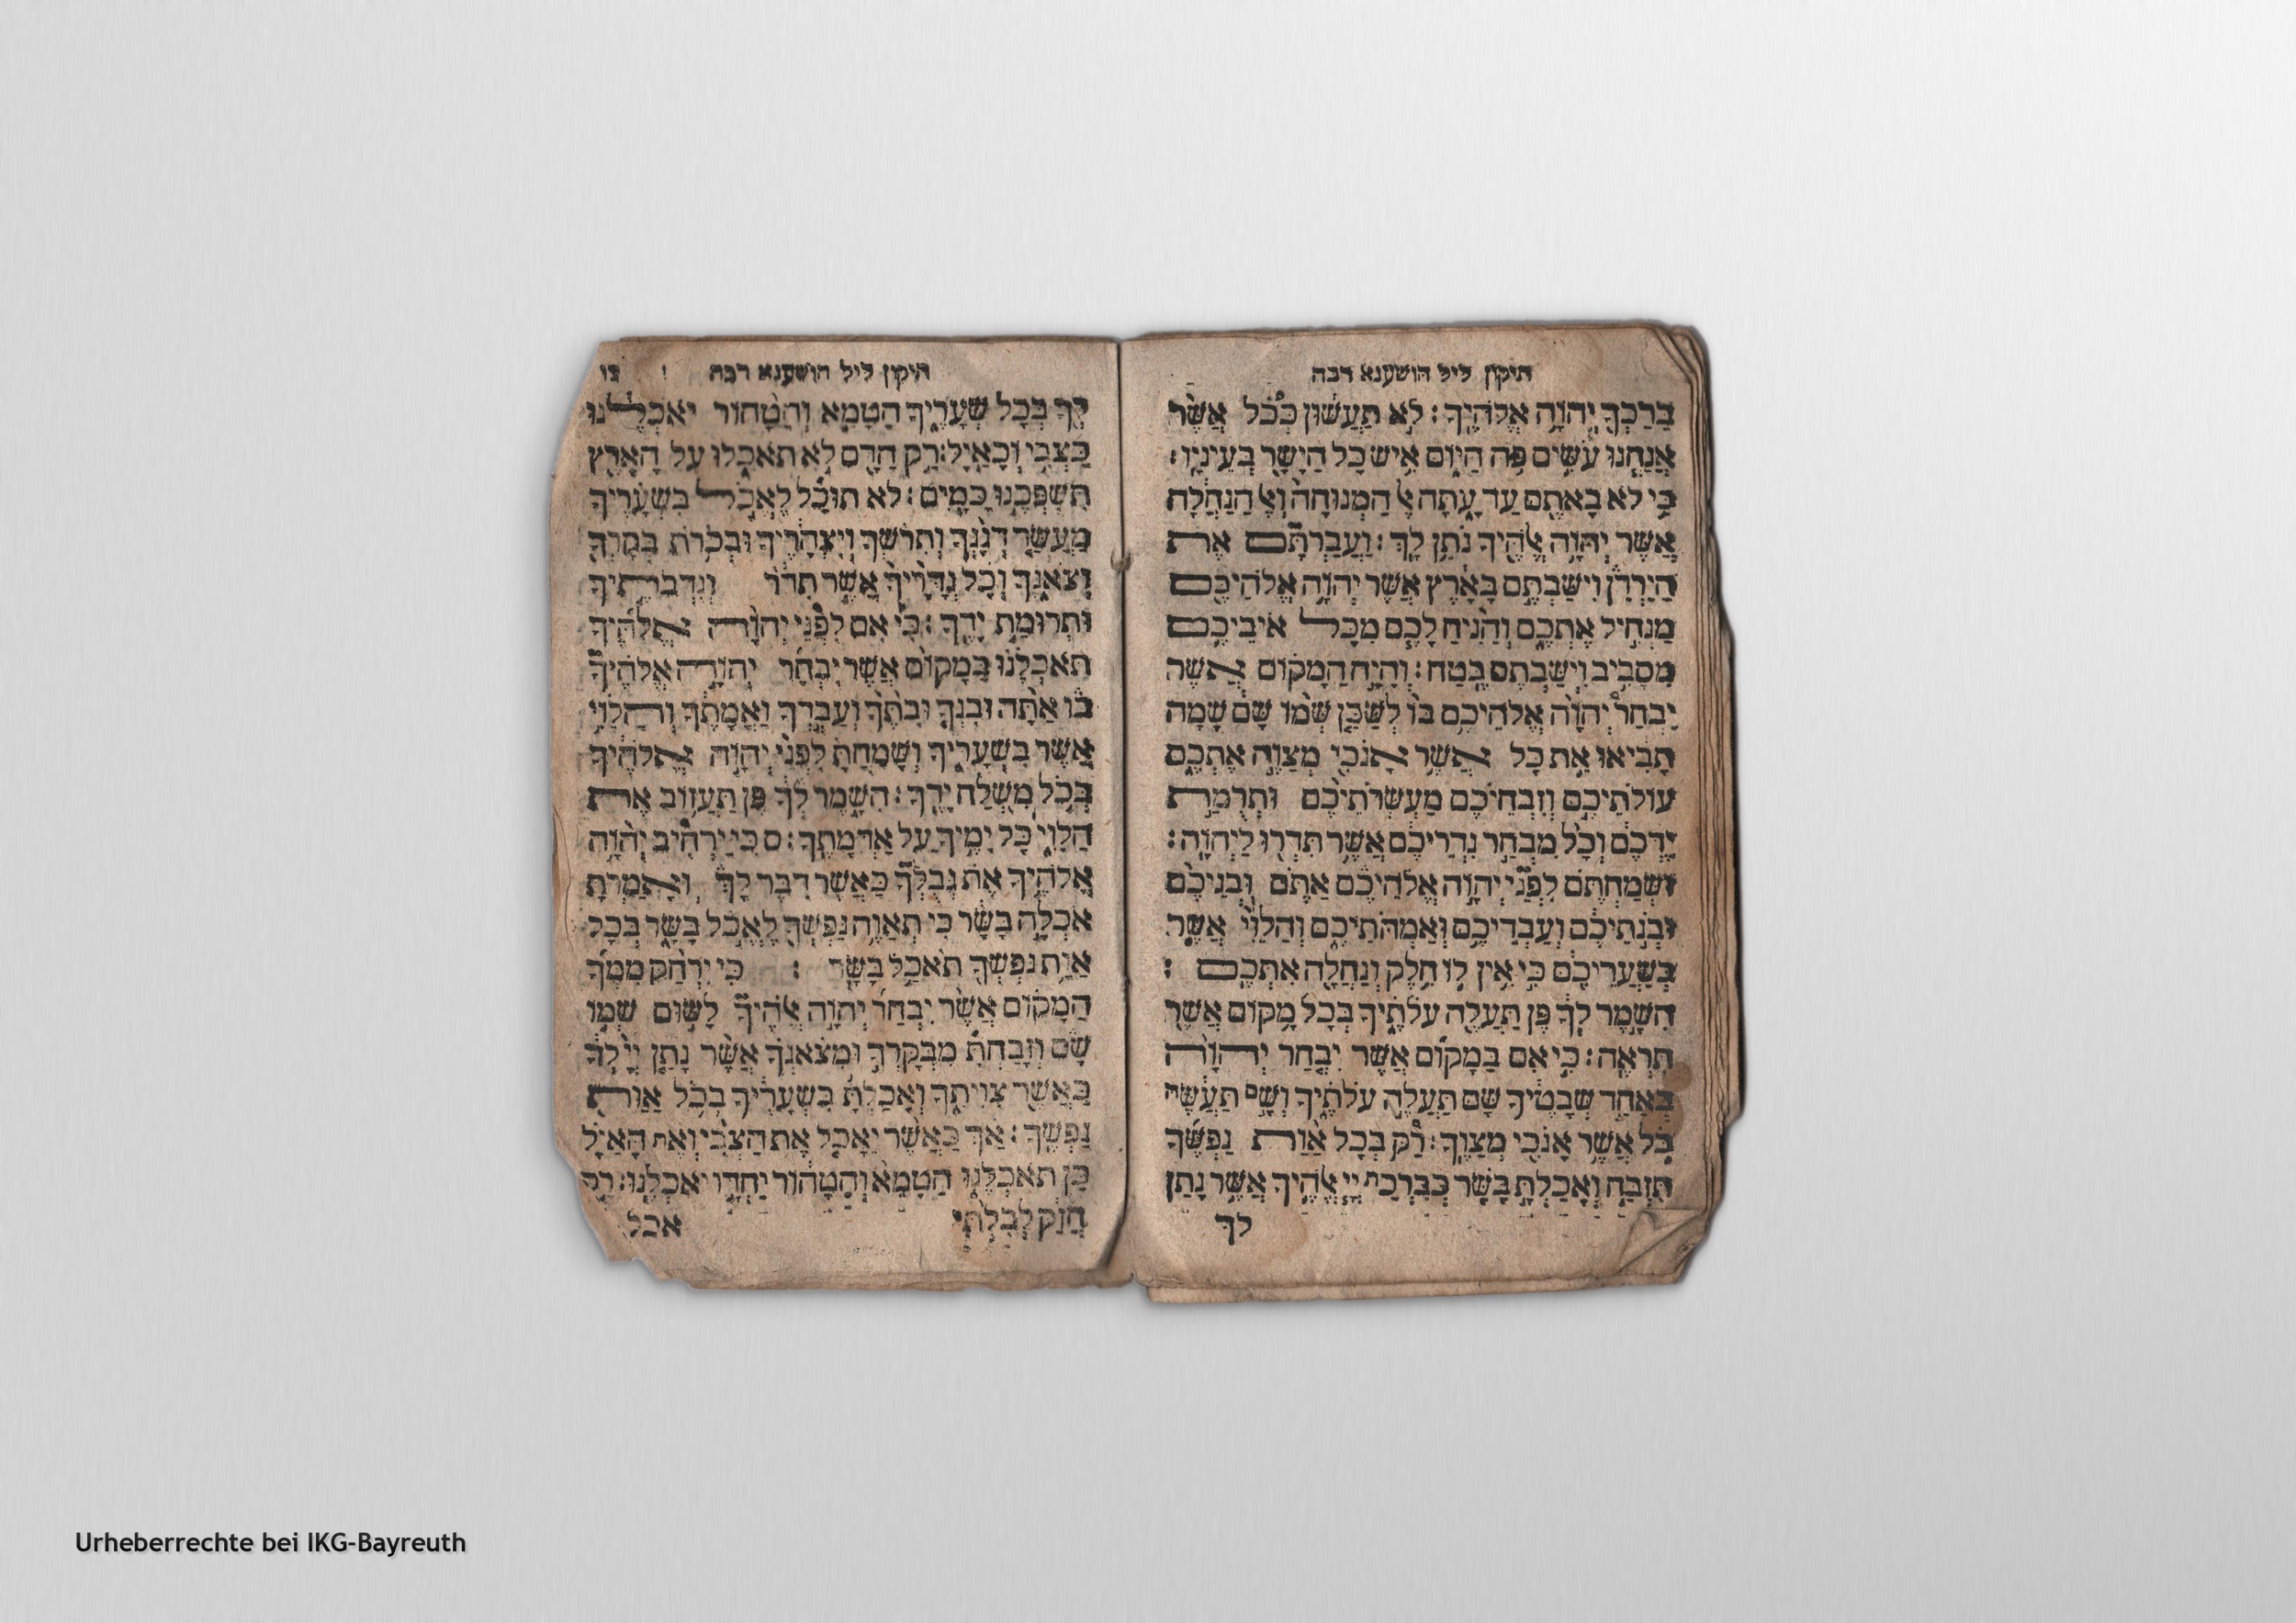 תיקון ליל הושענא רבה
בֵּרַכְךָ יְהוָה אֱלֹהֶיךָ׃ לֹא תַעֲשׂוּן כְּכֹל אֲשֶׁר
אֲנַחְנוּ עֹשִׂים פֹּה הַיּוֹם אִישׁ כָּל הַיָּשָׁר בְּעֵינָיו׃
כִּי לֹא בָאתֶם עַד עָתָּה אֶל הַמְּנוּחָה וְאֶל הַנַּחֲלָה
אֲשֶׁר יְהוָה אֱלֹהֶיךָ נֹתֵן לָךְ׃ וַעֲבַרְתֶּם אֶת
הַיַּרְדֵּן וִישַׁבְתֶּם בָּאָרֶץ אֲשֶׁר יְהוָה אֱלֹהֵיכֶם
מַנְחִיל אֶתְכֶם וְהֵנִיחַ לָכֶם מִכָּל אֹיְבֵיכֶם
מִסָּבִיב וִישַׁבְתֶּם בֶּטַח׃ וְהָיָה הַמָּקוֹם אֲשֶׁר
יִבְחַר יְהוָה אֱלֹהֵיכֶם בּוֹ לְשַׁכֵּן שְׁמוֹ שָׁם שָׁמָּה
תָבִיאוּ אֵת כָּל אֲשֶׁר אָנֹכִי מְצַוֶּה אֶתְכֶם
עוֹלֹתֵיכֶם וְזִבְחֵיכֶם מַעְשְׂרֹתֵיכֶם וּתְרֻמַת
יֶדְכֶם וְכֹל מִבְחַר נִדְרֵיכֶם אֲשֶׁר תִּדְּרוּ לַיהוָה׃
וּשְׂמַחְתֶּם לִפְנֵי יְהוָה אֱלֹהֵיכֶם אַתֶּם וּבְנֵיכֶם
וּבְנֹתֵיכֶם וְעַבְדֵיכֶם וְאַמְהֹתֵיכֶם וְהַלֵּוִי אֲשֶׁר
בְּשַׁעֲרֵיכֶם כִּי אֵין לוֹ חֵלֶק וְנַחֲלָה אִתְּכֶם ׃
הִשָּׁמֶר לְךָ פֶּן תַּעֲלֶה עֹלֹתֶיךָ בְּכָל מָקוֹם אֲשֶׁר
תִּרְאֶה׃ כִּי אִם בַּמָּקוֹם אֲשֶׁר יִבְחַר יְהוָה
בְּאַחַד שְׁבָטֶיךָ שָׁם תַּעֲלֶה עֹלֹתֶיךָ וְשָׁם תַּעֲשֶׂה
כֹּל אֲשֶׁר אָנֹכִי מְצַוֶּךָ׃ רַק בְּכָל אַוַּת נַפְשְׁךָ
תִּזְבַּח וְאָכַלְתָּ בָשָׂר כְּבִרְכַּת יְיָ אֱלֹהֶיךָ אֲשֶׁר נָתַן
לך
תיקון ליל הושענא רבה
לְךָ בְּכָל שְׁעָרֶיךָ הַטָּמֵא וְהַטָּהוֹר יֹאכְלֶנּוּ
כַּצְּבִי וְכָאַיָּל׃ רַק הַדָּם לֹא תֹאכֵלוּ עַל הָאָרֶץ
תִּשְׁפְּכֶנּוּ כַּמָּיִם׃ לֹא תוּכַל לֶאֱכֹל בִּשְׁעָרֶיךָ
מַעְשַׂר דְּגָנְךָ וְתִירֹשְׁךָ וְיִצְהָרֶיךָ וּבְכֹרֹת בְּקָרְךָ
וְצֹאנֶךָ וְכָל נְדָרֶיךָ אֲשֶׁר תִּדֹּר וְנִדְבֹתֶיךָ
וּתְרוּמַת יָדֶךָ׃ כִּי אִם לִפְנֵי יְהוָה אֱלֹהֶיךָ
תֹּאכְלֶנּוּ בַּמָּקוֹם אֲשֶׁר יִבְחַר יְהוָה אֱלֹהֶיךָ
בּוֹ אַתָּה וּבִנְךָ וּבִתֶּךָ וְעַבְדְּךָ וַאֲמָתֶךָ וְהַלֵּוִי
אֲשֶׁר בִּשְׁעָרֶיךָ וְשָׂמַחְתָּ לִפְנֵי יְהוָה אֱלֹהֶיךָ
בְּכֹל מִשְׁלַח יָדֶךָ׃ הִשָּׁמֶר לְךָ פֶּן תַּעֲזוֹב אֶת
הַלֵּוִי כָּל יָמֶיךָ עַל אַדְמָתֶךָ׃ ס כִּי יַרְחִיב יְהוָה
אֱלֹהֶיךָ אֶת גְּבֻלְךָ כַּאֲשֶׁר דִּבֶּר לָךְ וְאָמַרְתָּ
אֹכְלָה בָשָׂר כִּי תְאַוֶּה נַפְשְׁךָ לֶאֱכֹל בָּשָׂר בְּכָל
אַוַּת נַפְשְׁךָ תֹּאכַל בָּשָׂר ׃ כִּי יִרְחַק מִמְּךָ
הַמָּקוֹם אֲשֶׁר יִבְחַר יְהוָה אֱלֹהֶיךָ לָשׂוּם שְׁמוֹ
שָׁם וְזָבַחְתָּ מִבְּקָרְךָ וּמִצֹּאנְךָ אֲשֶׁר נָתַן יְיָ לְךָ
כַּאֲשֶׁר צִוִּיתִךָ וְאָכַלְתָּ בִּשְׁעָרֶיךָ בְּכֹל אַוַּת
נַפְשֶׁךָ׃ אַךְ כַּאֲשֶׁר יֵאָכֵל אֶת הַצְּבִי וְאֶת הָאַיָּל
כֵּן תֹּאכְלֶנּוּ הַטָּמֵא וְהַטָּהוֹר יַחְדָּו יֹאכְלֶנּוּ׃ רַק
חֲזַק לְבִלְתִּי אכל
Urheberrechte bei IKG-Bayreuth